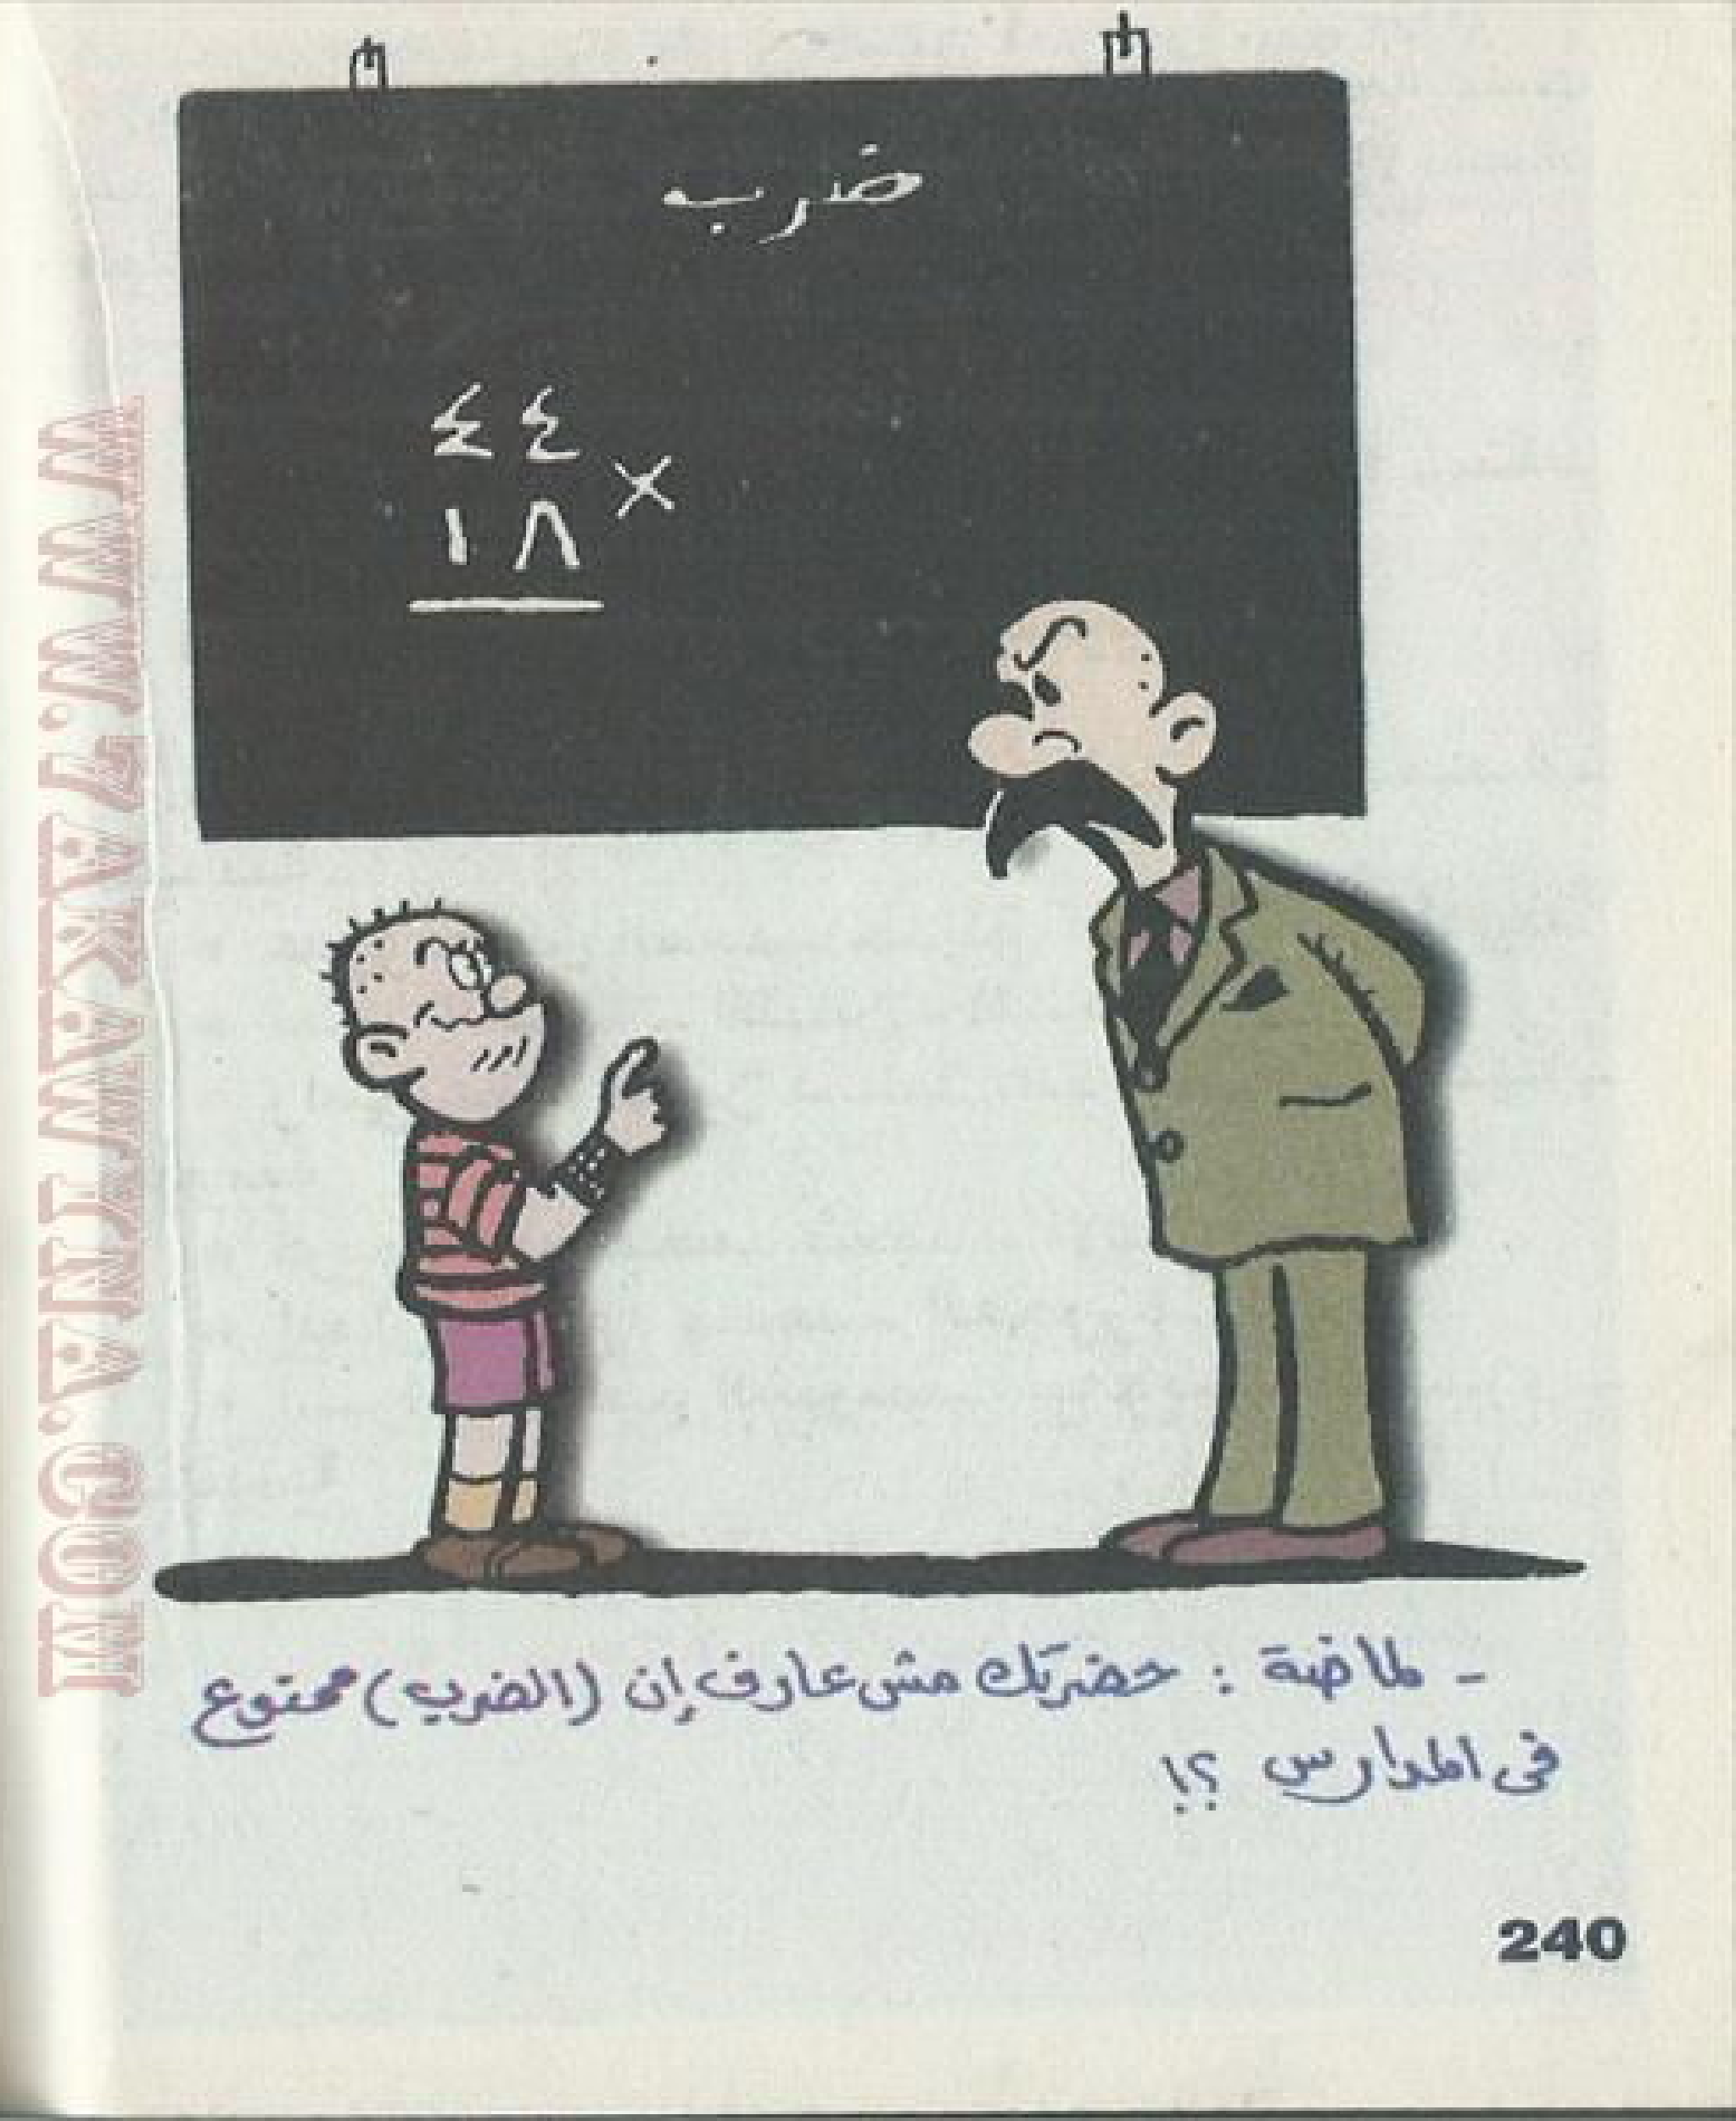 ضرب
٤٤
×
١٨
- لماضة : حضرتك مش عارف إن (الضرب) ممنوع
فى المدارس ؟!
240